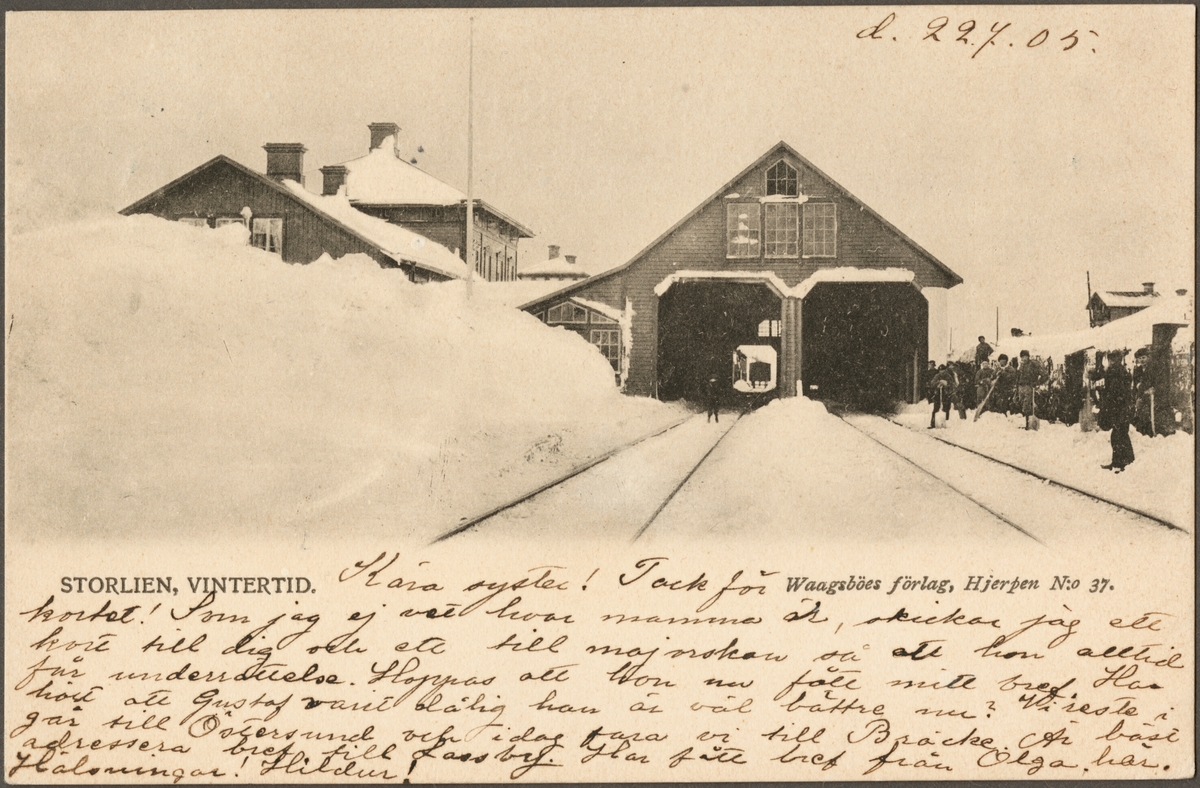 d. 22.7.05.
STORLIEN, VINTERTID. Kära syster! Tack för Waagsböes förlag, Hjerpen N:o 37.
kortet! Som jag ej vet hvar mamma är, skickar jag ett
kort till dig och ett till majorskan så att hon alltid
får underrättelse. Hoppas att hon nu fått mitt bref. Har
hört att Gustaf varit dålig han är väl bättre nu? Vi reste i
går till Östersund och idag fara vi till Bräcke. Är bäst
adressera bref till Lassby. Har fått bref från Olga, här.
Hälsningar! Hildur!